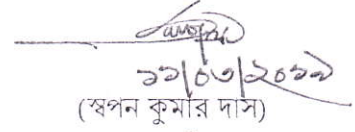 ১১/০৩/২০১৯
(স্বপন কুমার দাস)